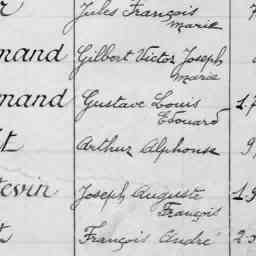 Jules François
Marie
mand Gilbert Victor Joseph
Marie
mand Gustave Louis 1.7
Edouard
t Arthur Alphonse 9
tevin Joseph Auguste 1.9
François
t François André 2.0